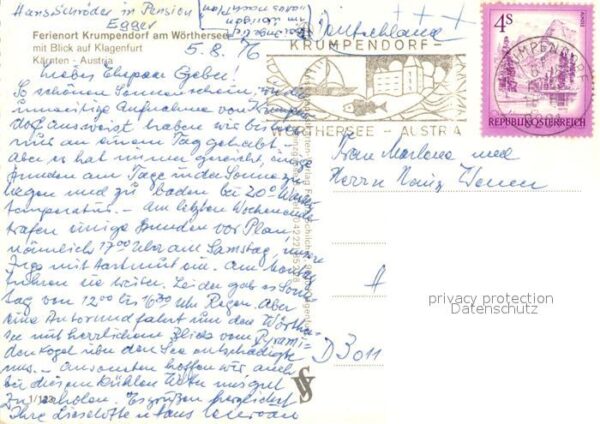 Hans Schröder in Pension
Egger
Ferienort Krumpendorf am Wörthersee
mit Blick auf Klagenfurt
Kärnten - Austria
5.8.76
Liebes Ehepaar
So schönen Sonnenschein, wie die
Aufnahme von Krumpen-
dorf haben wir bisher
nur an einem Tag gehabt.
Aber es hat immer gereicht, einige
Stunden am Tage in der Sonne zu
liegen und zu baden bei 20° Wasser
temperatur. - Am letzten Wochenende
trafen einige Stunden vor Plan,
nämlich 17.00 Uhr am Samstag, unsere
Ingo mit Hartmut ein. Am Montag
fuhren sie weiter. Leider gab es Sonn-
tag von 12.00 bis Uhr Regen. Aber
eine Autorundfahrt um den Wörther-
see mit herrlichem Blick vom Pyrami-
denkogel über den See entschädigte
uns. - Ansonsten hoffen wir, auch
bei diesem kühlen Wetter uns gut
zu erholen. Es grüßen herzlichst
Ihre Lieselotte u. Hans
1/123
Deutschland
KRUMPENDORF-
WÖRTHERSEE - AUSTRIA
4S
REPUBLIK ÖSTERREICH
KRUMPENDORF
Frau Marlene und
Herrn Heinz
D 3011
privacy protection
Datenschutz